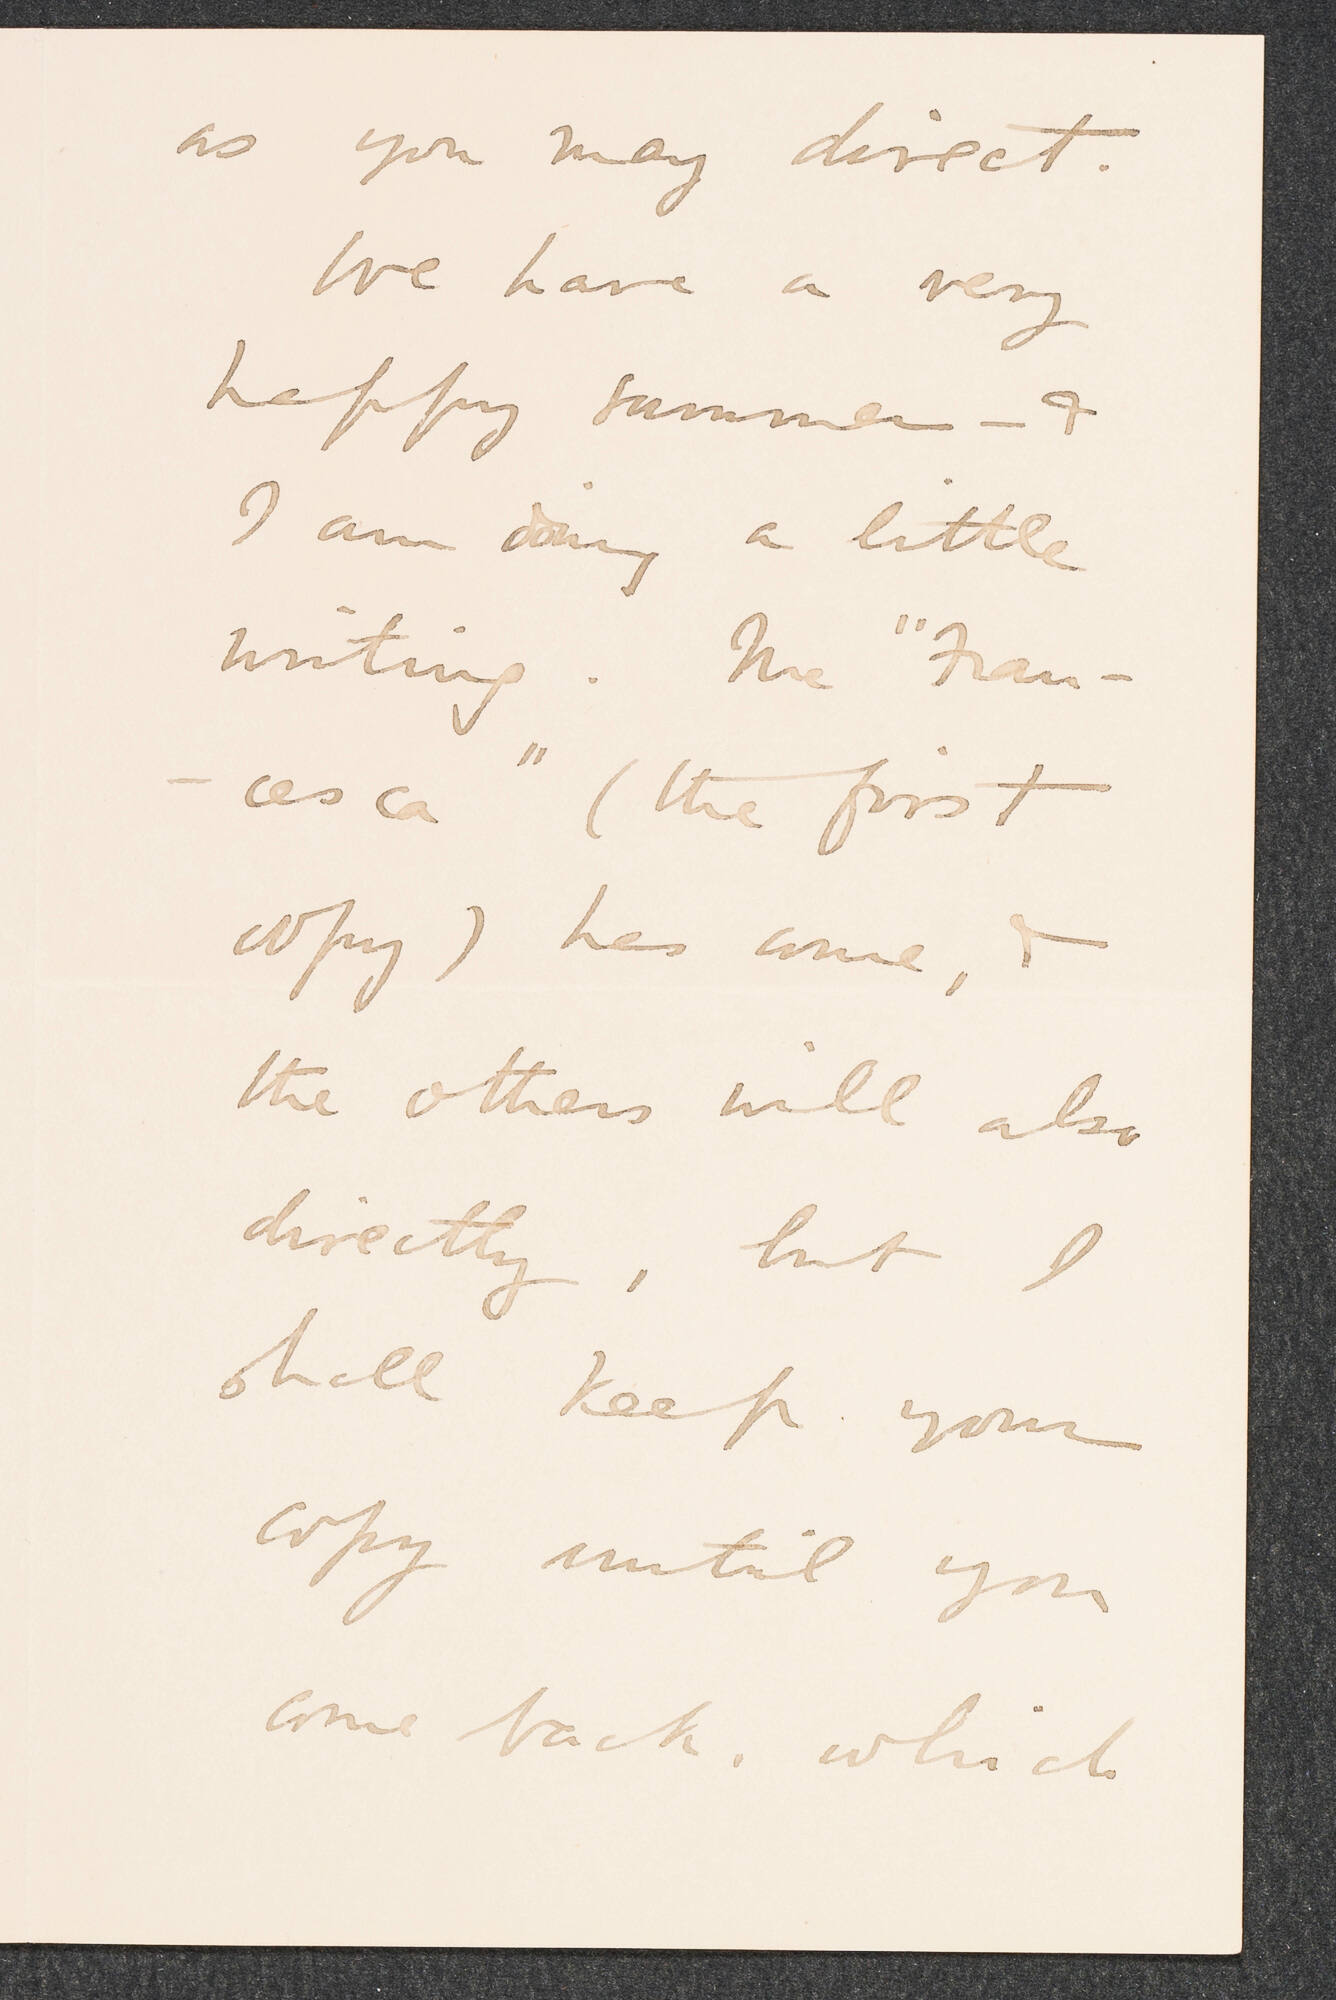 as you may direct.
We have a very
happy summer – &
I am doing a little
writing. The "Fran-
- cesca" (the first
copy) has come, &
the others will also
directly, but I
shall keep your
copy until you
come back. which